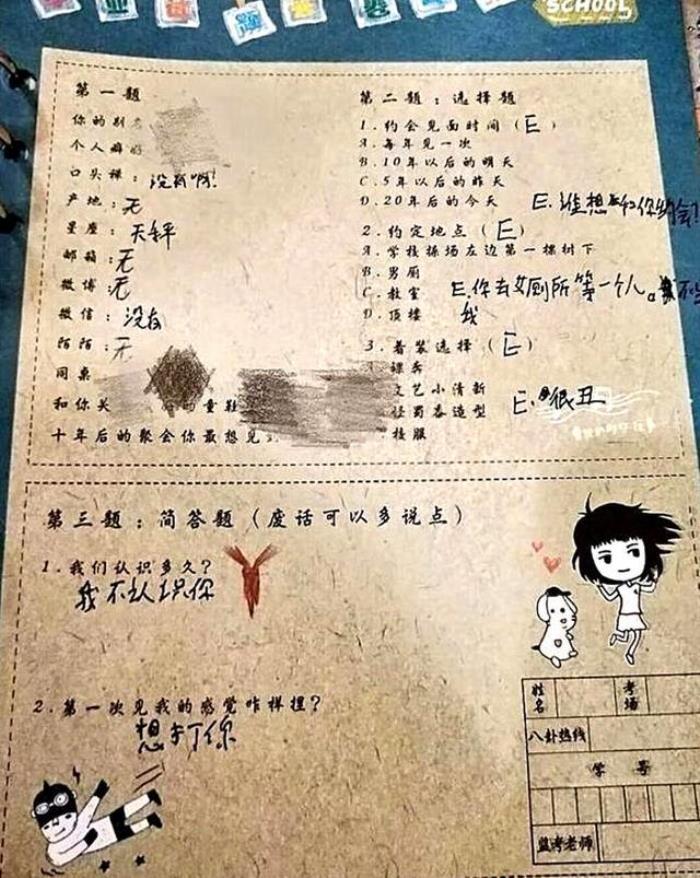 SCHOOL
第一题
你的别名
个人癖好
口头禅：没有啊!
产地：无
星座：天秤
邮箱：无
微博：无
微信：没有
陌陌：无
同桌
和你关
的童鞋
十年后的聚会你最想见到
第二题：选择题
1.约会见面时间（E）
A.每年见一次
B.10年以后的明天
C.5年以后的昨天
D.20年后的今天 E.谁想和你约会!
2.约定地点（E）
A.学校操场左边第一棵树下
B.男厕
C.教室 E.你去女厕所等一个人。我不
D.顶楼 我
3.着装选择（E）
裸奔
文艺小清新
怪蜀黍造型 E.很丑
校服
第三题：简答题（废话可以多说点）
1.我们认识多久?
我不认识你
2.第一次见我的感觉咋样捏?
想打你
姓名
考场
八卦热线
学号
监考老师